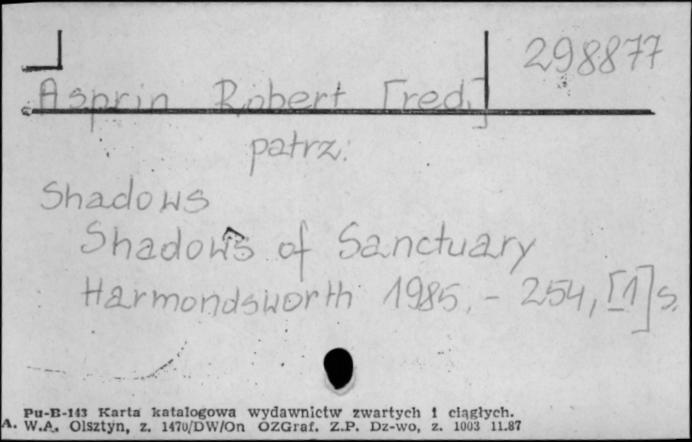 298877
Asprin Robert [red.]
patrz:
Shadows
Shadows of Sanctuary
Harmondsworth 1985. - 254, [1] s.
Pu-B-143 Karta katalogowa wydawnictw zwartych i ciągłych.
A. W.A. Olsztyn, z. 1470/DW/On OZGraf. Z.P. Dz-wo, z. 1003 11.87